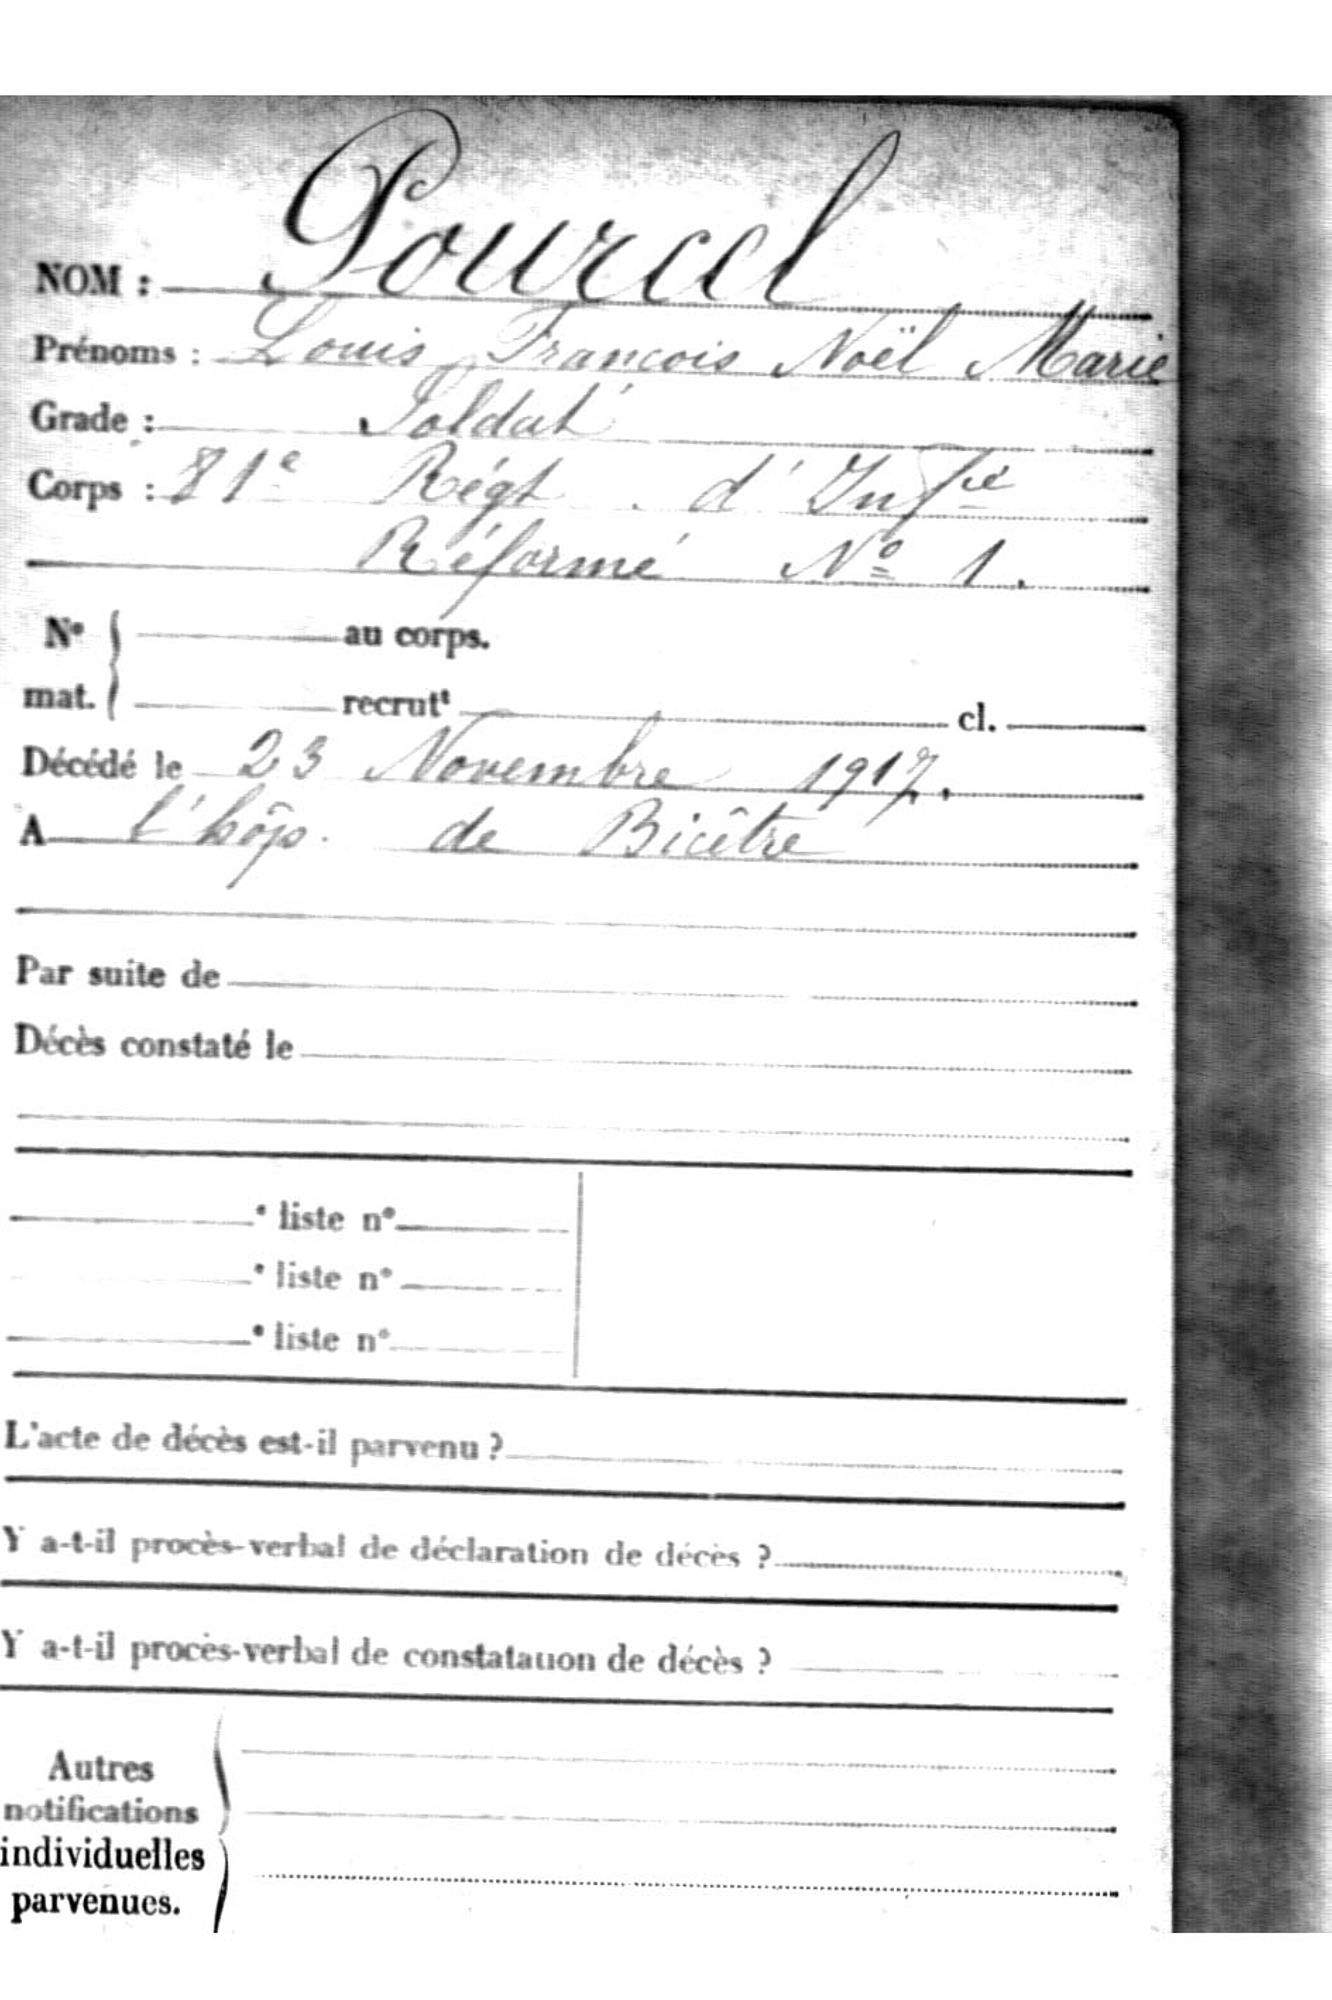 NOM : Pourcel
Prénoms : Louis François Noël Marie
Grade : Soldat
Corps : 81e Régt. d'Infie
Réformé No 1.
No au corps.
mat. recrutt cl.
Décédé le 23 Novembre 1917.
A l'hôp. de Bicêtre
Par suite de
Décès constaté le
e liste no
e liste no
e liste no
L'acte de décès est-il parvenu ?
Y a-t-il procès-verbal de déclaration de décès ?
Y a-t-il procès-verbal de constatation de décès ?
Autres
notifications
individuelles
parvenues.